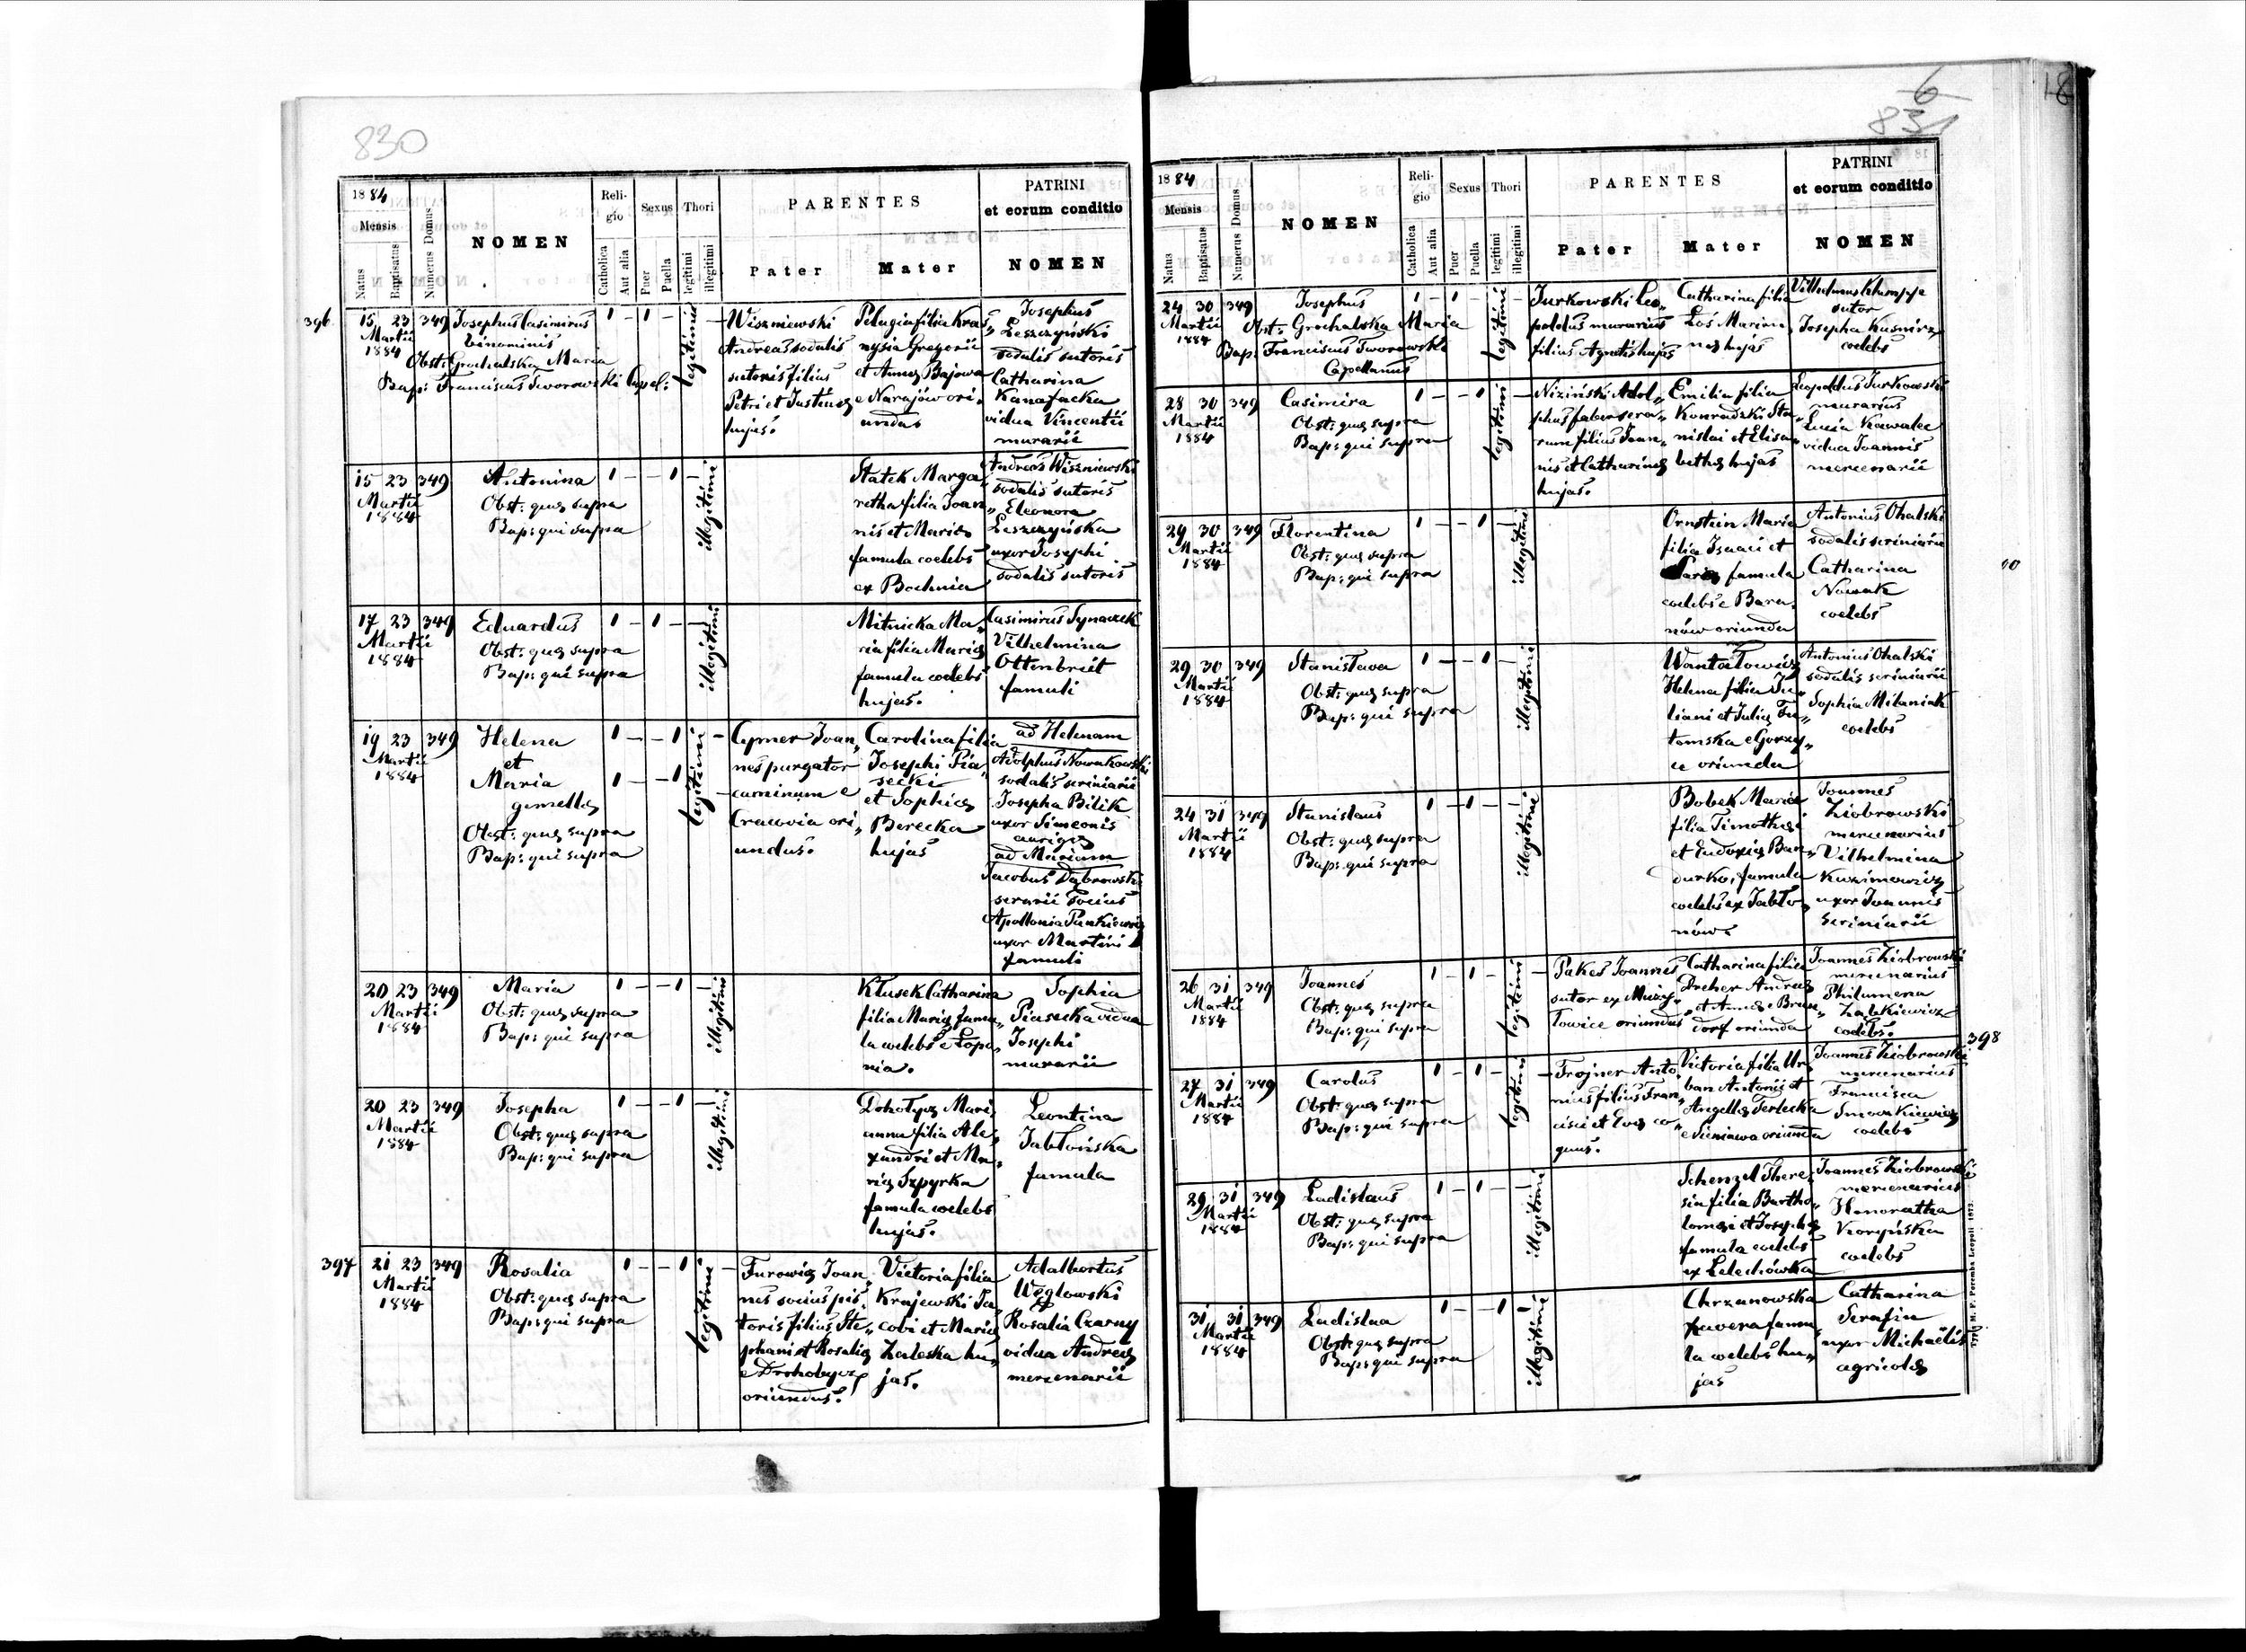 830
1884
Mensis
Natus
Baptisatus
Numerus Domus
NOMEN
Religio
Catholica
Aut alia
Sexus
Puer
Puella
Thori
legitimi
illegitimi
PARENTES
Pater
Mater
PATRINI
et eorum conditio
NOMEN
396
15 23 349
Martii
1884
Josephus Casimirus
binominis
Obst: Grochalska Maria
Bap: Franciscus Tworowski Capel:
1 – 1 – legitimi –
Wiszniewski
Andreas sodalis
sutoris filius
Petri et Justinæ
hujas.
Pelagia filia Kras„
nysia Gregorii
et Annæ Bajowa
e Narajów ori„
unda
Josephus
Leszczyński
sodalis sutoris
Catharina
Kanafacka
vidua Vincentii
murarii
15 23 349
Martii
1884
Antonina
Obst: quæ supra
Bap: qui supra
1 – – 1 – illegitimi
Statek Marga„
retha filia Joan„
nis et Mariæ
famula coelebs
ex Bochnia
Andreas Wiszniewski
sodalis sutoris
Eleonora
Leszczyńska
uxor Josephi
sodalis sutoris
17 23 349
Martii
1884
Eduardus
Obst: quæ supra
Bap: qui supra
1 – 1 – – illegitimi
Mitnicka Ma„
ria filia Mariæ
famula coelebs
hujas.
Casimirus Synaczek
Vilhelmina
Ottenbreit
famuli
19 23 349
Martii
1884
Helena
et
Maria
gemellæ
Obst: quæ supra
Bap: qui supra
1 – – 1 legitimi –
1 – 1
Cymer Joan„
nes purgator
caminum e
Cracovia ori„
undus.
Carolina filia
Josephi Pia„
secki
et Sophiæ
Berecka
hujas
ad Helenam
Adolphus Nowakowski
sodalis scriniarii
Josepha Bilik
uxor Simeonis
aurigæ
ad Mariam
Jacobus Dąbrowski
serarii socius
Apollonia Pankiewicz
uxor Martini
famuli
20 23 349
Martii
1884
Maria
Obst: quæ supra
Bap: qui supra
1 – – 1 – illegitimi
Kłusek Catharina
filia Mariæ famu„
la coelebs e Łopa„
nia.
Sophia
Piasecka vidua
Josephi
murarii
20 23 349
Martii
1884
Josepha
Obst: quæ supra
Bap: qui supra
1 – – 1 – illegitimi
Dohotyæ Mari„
anna filia Ale„
xandri et Ma„
riæ Szpyrka
famula coelebs
hujas.
Leontina
Jabłońska
famula
397
21 23 349
Martii
1884
Rosalia
Obst: quæ supra
Bap: qui supra
1 – – 1 legitimi –
Furowicz Joan„
nes socius pis„
toris filius Ste„
phani et Rosaliæ
e Drohobycz
oriundus.
Victoria filia
Krajewski Ja„
cobi et Mariæ
Zaleska hu„
jas.
Adalbertus
Węglowski
&
Rosalia Czarny
vidua Andreæ
mercenarii
6
831
18
1884
Mensis
Natus
Baptisatus
Numerus Domus
NOMEN
Religio
Catholica
Aut alia
Sexus
Puer
Puella
Thori
legitimi
illegitimi
PARENTES
Pater
Mater
PATRINI
et eorum conditio
NOMEN
24 30 349
Martii
1884
Josephus
Obst: Grochalska Maria
Bap: Franciscus Tworowski
Capellanus
1 – 1 – legitimi –
Jurkowski Leo„
poldus murarius
filius Agnetis hujas
Catharina filia
Łoś Marian„
næ hujas
Vilhelmus Klumpfe
sutor
Josepha Kusnirz
coelebs
28 30 349
Martii
1884
Casimira
Obst: quæ supra
Bap: qui supra
1 – – 1 legitimi –
Niziński Adol„
phus faber sera„
rum filius Joan„
nis et Catharinæ
hujas.
Emilia filia
Konradzki Sta„
nislai et Elisa„
bethæ hujas
Leopoldus Jurkowski
murarius
Lucia Kawalec
vidua Joannis
mercenarii
29 30 349
Martii
1884
Florentina
Obst: quæ supra
Bap: qui supra
1 – – 1 – illegitimi
Ornstein Maria
filia Isaaci et
famula
coelebs e Bara„
nów oriunda
Antonius Ohalski
sodalis scriniarii
Catharina
Nowak
coelebs
29 30 349
Martii
1884
Stanisława
Obst: quæ supra
Bap: qui supra
1 – – 1 – illegitimi
Wantałowicz
Helena filia Ju„
liani et Juliæ Fu„
tomska e Gorzy„
ce oriunda
Antonius Ohalski
sodalis scriniarii
Sophia Milaniak
coelebs
24 31 349
Martii
1884
Stanislaus
Obst: quæ supra
Bap: qui supra
1 – 1 – – illegitimi
Bobek Maria
filia Timothei
et Eudoxiæ Ban„
durko, famula
coelebs ex Jabło„
nów.
Joannes
Ziobrowski
mercenarius
Vilhelmina
Kuzimowicz
uxor Joannis
scriniarii
26 31 349
Martii
1884
Joannes
Obst: quæ supra
Bap: qui supra
1 – 1 – legitimi –
Pakes Joannes
sutor ex Muzy„
łowice oriundus
Catharina filia
Dreher Andreæ
et Annæ e Brun„
dorf oriunda
Joannes Ziobrowski
mercenarius
Philumena
Ziębkiewicz
coelebs.
398
27 31 349
Martii
1884
Carolus
Obst: quæ supra
Bap: qui supra
1 – 1 – legitimi –
Trojner Anto„
nius filius Fran„
cisci et Evæ co„
quus.
Victoria filia Ur„
ban Antonii et
Angellæ Terlecka
e Sieniawa oriunda
Joannes Ziobrowski
mercenarius
Francisca
Smovkiewicz
coelebs
29 31 349
Martii
1884
Ladislaus
Obst: quæ supra
Bap: qui supra
1 – 1 – – illegitimi
Schenzel There„
sia filia Bartho„
lomæi et Josephæ
famula coelebs
ex Lelechówka
Joannes Ziobrowski
mercenarius
Honoratha
Korzyńska
coelebs
31 31 349
Martii
1884
Ladislaa
Obst: quæ supra
Bap: qui supra
1 – – 1 – illegitimi
Chrzanowska
Xavera famu„
la coelebs hu„
jas
Catharina
Serafin
uxor Michaëlis
agricolæ
Typ. M. F. Poremba Leopoli 1873.